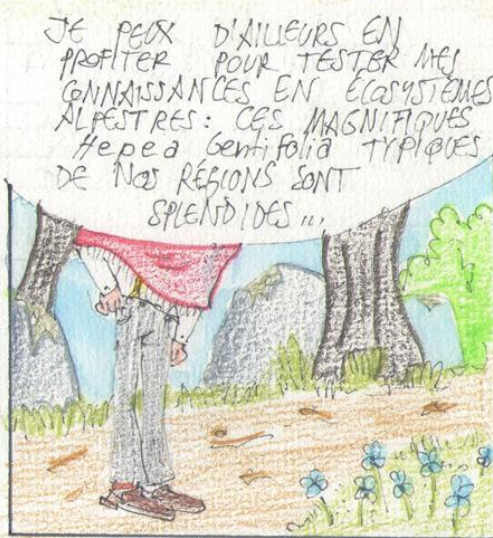 JE PEUX D'AILLEURS EN
PROFITER POUR TESTER MES
CONNAISSANCES EN ÉCOSYSTÈMES
ALPESTRES: CES MAGNIFIQUES
Hepea Gentifolia TYPIQUES
DE NOS RÉGIONS SONT
SPLENDIDES...